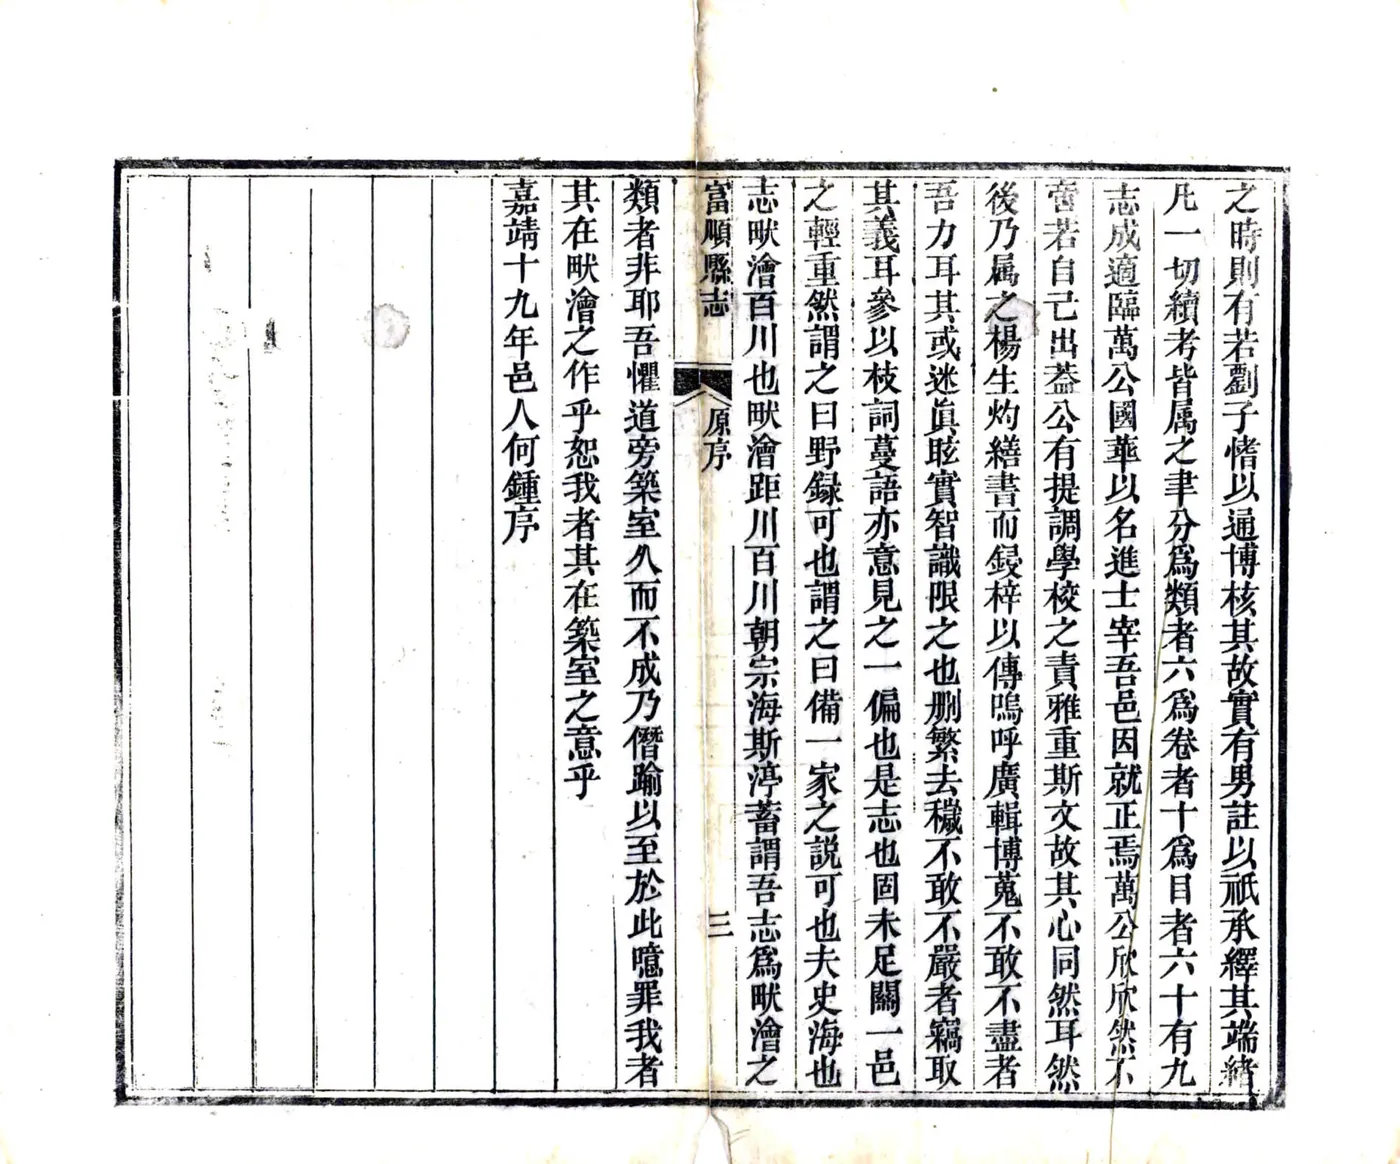 之時則有若劉子愭以通博核其故實有男註以祇承繹其端緒
凡一切續考皆属之聿分爲類者六爲卷者十爲目者六十有九
志成適臨萬公國華以名進士宰吾邑因就正焉萬公欣欣然不
啻若自己出葢公有提調學校之責雅重斯文故其心同然耳然
後乃属之楊生灼繕書而鋟梓以傳嗚呼廣輯博蒐不敢不盡者
吾力耳其或迷眞眩實智識限之也删繁去穢不敢不嚴者竊取
其義耳參以枝詞蔓語亦意見之一偏也是志也固未足關一邑
之輕重然謂之曰野録可也謂之曰備一家之説可也夫史海也
志畎澮百川也畎澮距川百川朝宗海斯渟蓄謂吾志爲畎澮之
富順縣志 原序 三
類者非耶吾懼道旁築室久而不成乃僭踰以至於此噫罪我者
其在畎澮之作乎恕我者其在築室之意乎
嘉靖十九年邑人何鍾序